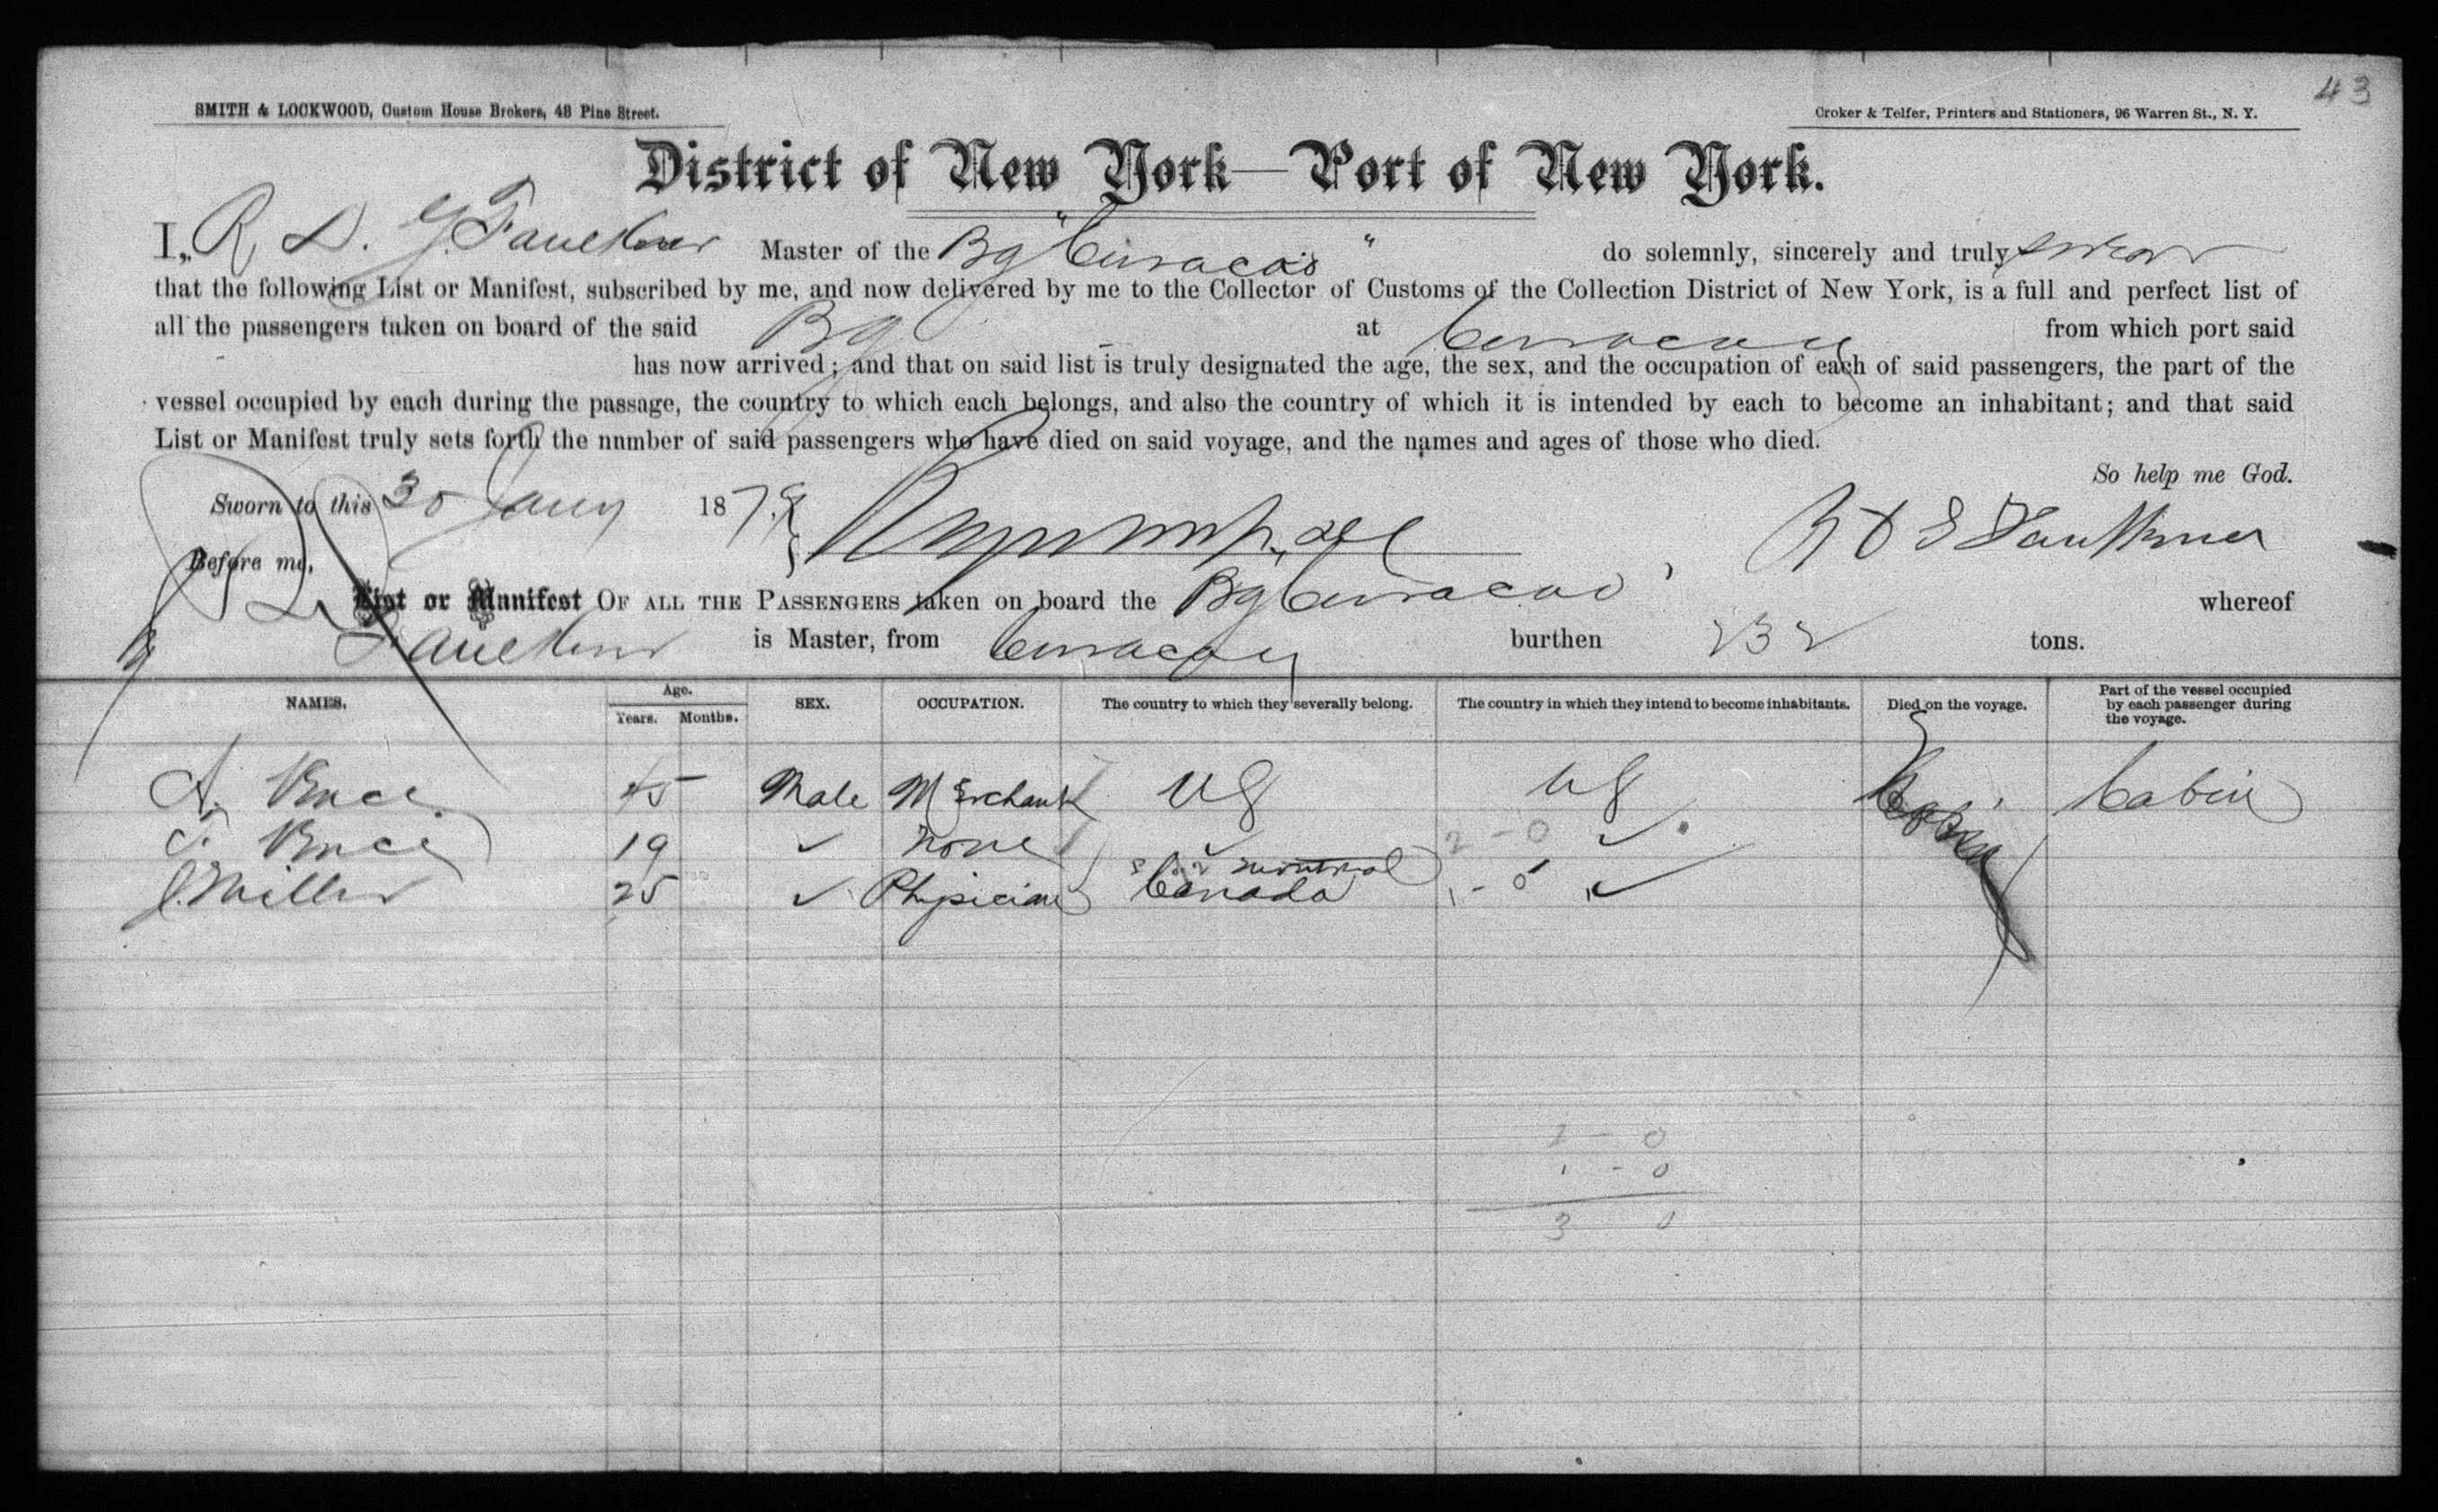 43
SMITH & LOCKWOOD, Custom House Brokers, 48 Pine Street. Croker & Telfer, Printers and Stationers, 96 Warren St., N. Y.
District of New York—Port of New York.
I, R D. G. Faulkner Master of the Bg "Curacao" do solemnly, sincerely and truly swear
that the following List or Manifest, subscribed by me, and now delivered by me to the Collector of Customs of the Collection District of New York, is a full and perfect list of
all the passengers taken on board of the said Bg at Curacao from which port said
has now arrived; and that on said list is truly designated the age, the sex, and the occupation of each of said passengers, the part of the
vessel occupied by each during the passage, the country to which each belongs, and also the country of which it is intended by each to become an inhabitant; and that said
List or Manifest truly sets forth the number of said passengers who have died on said voyage, and the names and ages of those who died.
So help me God.
Sworn to this 30 Jany 1879 R D G Faulkner
Before me,
List or Manifest OF ALL THE PASSENGERS taken on board the Bg Curacao, whereof
R D G Faulkner is Master, from Curacao burthen 232 tons.
NAMES. Age. Years. Months. SEX. OCCUPATION. The country to which they severally belong. The country in which they intend to become inhabitants. Died on the voyage. Part of the vessel occupied by each passenger during the voyage.
A. 45 Male Merchant US US Cabin
19 ✓ None ✓ 2 - 0 ✓
Montreal
J. Miller 25 ✓ Physician Canada 1 - 0 ✓
2 - 0
1 - 0
3 0